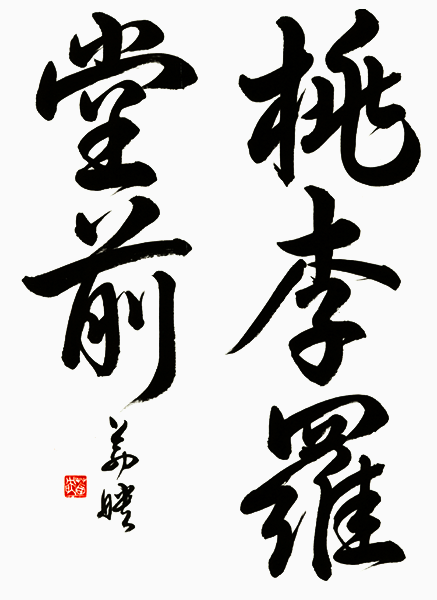 桃李羅
堂前